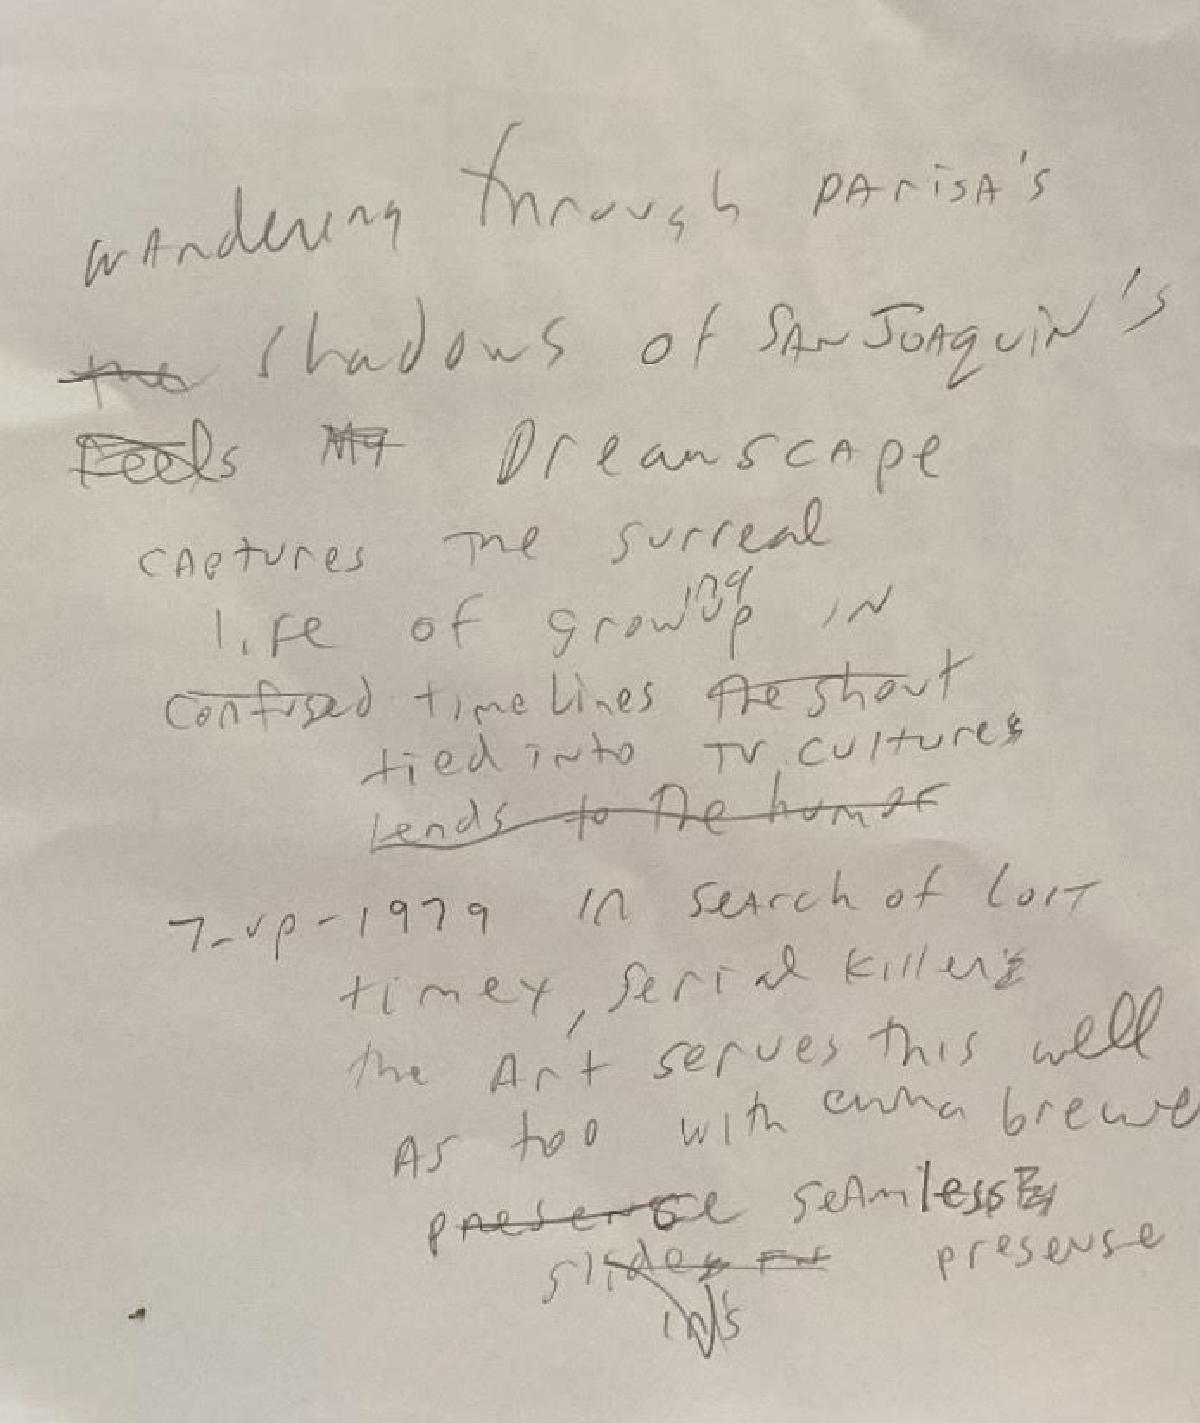 wandering through parisa's
the shadows of SAN JOAQUIN's
Feels My Dreamscape
captures the surreal
life of growing up IN
confused timelines the short
tied into TV, cultures
lends to the humor
7-up-1979 in search of lost
timex, serial killers
the Art serves this well
As too with emma brewe
presence seamless
slides presense
in's